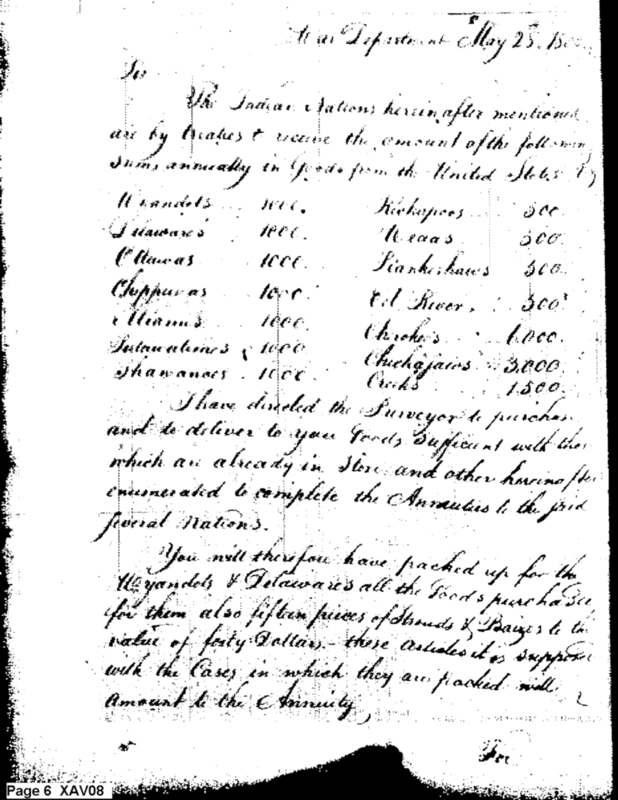 War Department May 23. 180
Sir
The Indian Nations herein after mentioned
are by treaties to receive the amount of the following
Sums, annually in Goods from the United States
Wyandots 1000. Kickapoos 500.
Delawares 1000. Weaas 500.
Ottawas 1000. Piankeshaws 500.
Chippuwas 1000. Eel River. 500
Miamis 1000. Cherokees 6,000.
Putawatimes 1000 Chickasaws 3,000.
Shawanoes 1000. Creeks 1.500.
I have directed the Purveyor to purchase
and to deliver to you Goods sufficient with those
which are already in Store and other herein after
enumerated to complete the Annuities to the said
several Nations.
You will therefore have packed up for the
Wyandots & Delawares all the Goods purchased
for them also fifteen pieces of Strouds & Baizes to the
value of forty Dollars - these articles it is supposed
with the Cases in which they are packed will
Amount to the Annuity
For
Page 6 XAV08